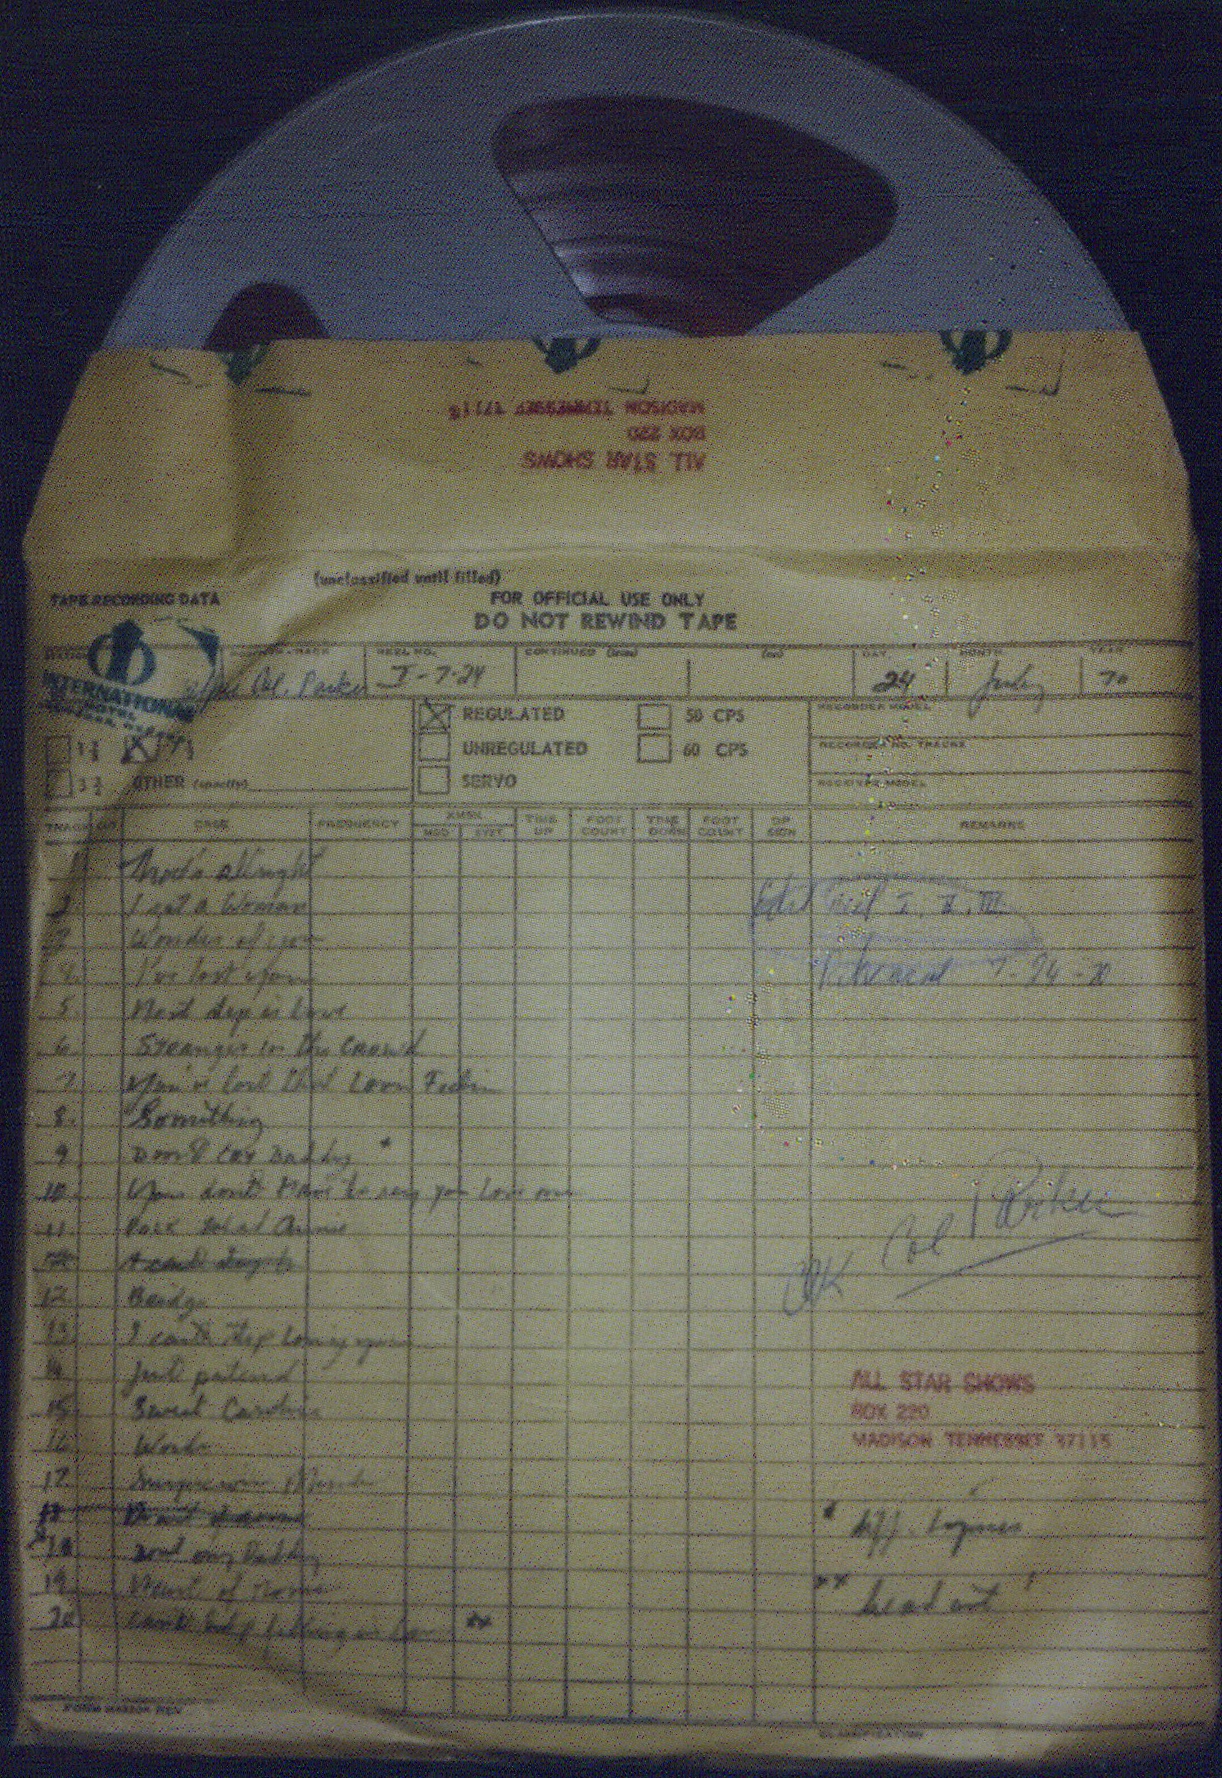 ALL STAR SHOWS
BOX 220
MADISON TENNESSEE 37115
(unclassified until filled)
TAPE RECORDING DATA
FOR OFFICIAL USE ONLY
DO NOT REWIND TAPE
REEL NO. CONTINUED (from) (to) DAY MONTH YEAR
Col. Parker I-7-24 24 July 70
INTERNATIONAL
HOTEL
REGULATED 50 CPS RECORDER MODEL
UNREGULATED 60 CPS RECORDER NO. TRACKS
SERVO RECEIVER MODEL
1 7/8 X 7 1/2
3 3/4 OTHER (specify)
CASE FREQUENCY XMSN TIME UP FOOT COUNT TIME DOWN FOOT COUNT OP SIGN REMARKS
MOD SYST
1 That's allright
2 I got a Woman
3 Wonder of you
4. I've lost you
5. Next step is love
6. Stranger in the Crowd
7. You've lost that Lovin Feelin
8. Something
9 Don't cry Daddy *
10. You don't have to say you love me
11. Polk Salad Annie
12 Bridge
13 I can't stop loving you
14 Just pretend
15. Sweet Caroline
16 Words
17 Suspicious Minds
19. Heart of Rome
20 Can't help falling in Love **
Reel I. II. III
Rehearsal 7-24-70
OK Col Parker
ALL STAR SHOWS
BOX 220
MADISON TENNESSEE 37115
* diff.
** head out !
CLASSIFICATION